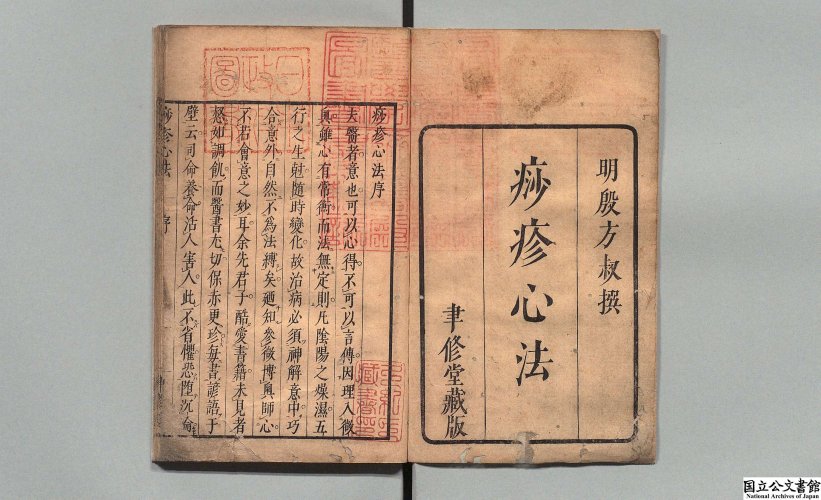 明殷方叔撰
痧疹心法
聿修堂藏版
痧疹心法序
夫醫者意也可以心得不可以言傳因理入微
與雖心有常衡而法無定則凡陰陽之燥濕五
行之生尅隨時變化故治病必須神解意中巧
合意外自然不為法縛矣廼知參微博奧師心
不若會意之妙耳余先君子酷愛書籍未見者
惄如調飢而醫書尤切保赤更珍每書諺語于
壁云司命養命活人害人此不省懼恐墮沉淪
痧疹心法
序
国立公文書館
National Archives of Japan